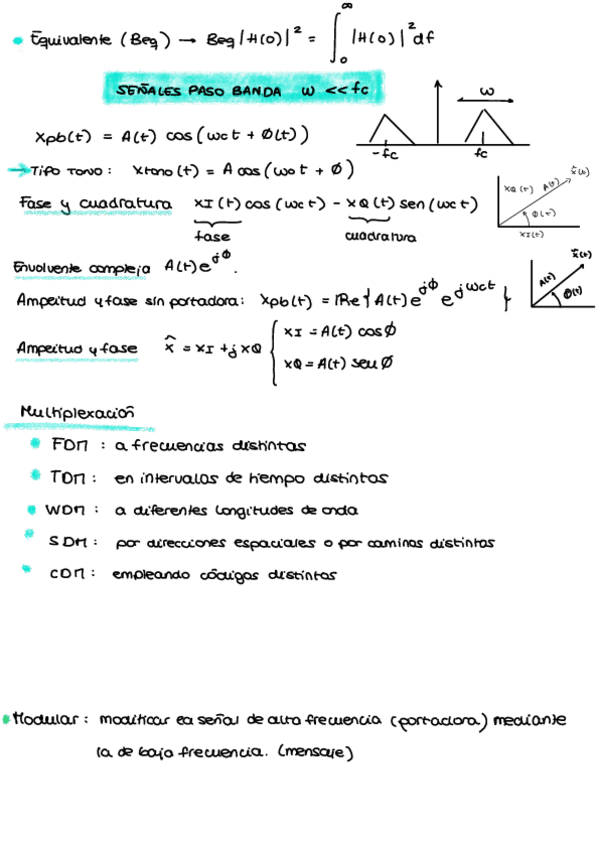 • Equivalente (Beq) → Beq |H(0)|² = ∫₀^∞ |H(0)|² df
SEÑALES PASO BANDA W << fc
xpb(t) = A(t) cos (wc t + Ø(t))
W
-fc fc
→ Tipo TONO : xtono (t) = A cos (wo t + Ø)
Fase y cuadratura xI (t) cos (wc t) - xQ (t) sen (wc t)
fase cuadratura
xQ (t) A(t) x̂(t)
Ø(t)
xI(t)
Envolvente compleja A(t) e^jØ.
Amplitud y fase sin portadora : xpb(t) = Re { A(t) e^jØ e^jwct }
x̂(t)
A(t) Ø(t)
Amplitud y fase x̂ = xI + j xQ { xI = A(t) cos Ø
xQ = A(t) sen Ø
Multiplexación
• FDM : a frecuencias distintas
• TDM : en intervalos de tiempo distintos
• WDM : a diferentes longitudes de onda
• SDM : por direcciones espaciales o por caminos distintos
• CDM : empleando códigos distintos
• Modular : modificar la señal de alta frecuencia (portadora) mediante
la de baja frecuencia. (mensaje)